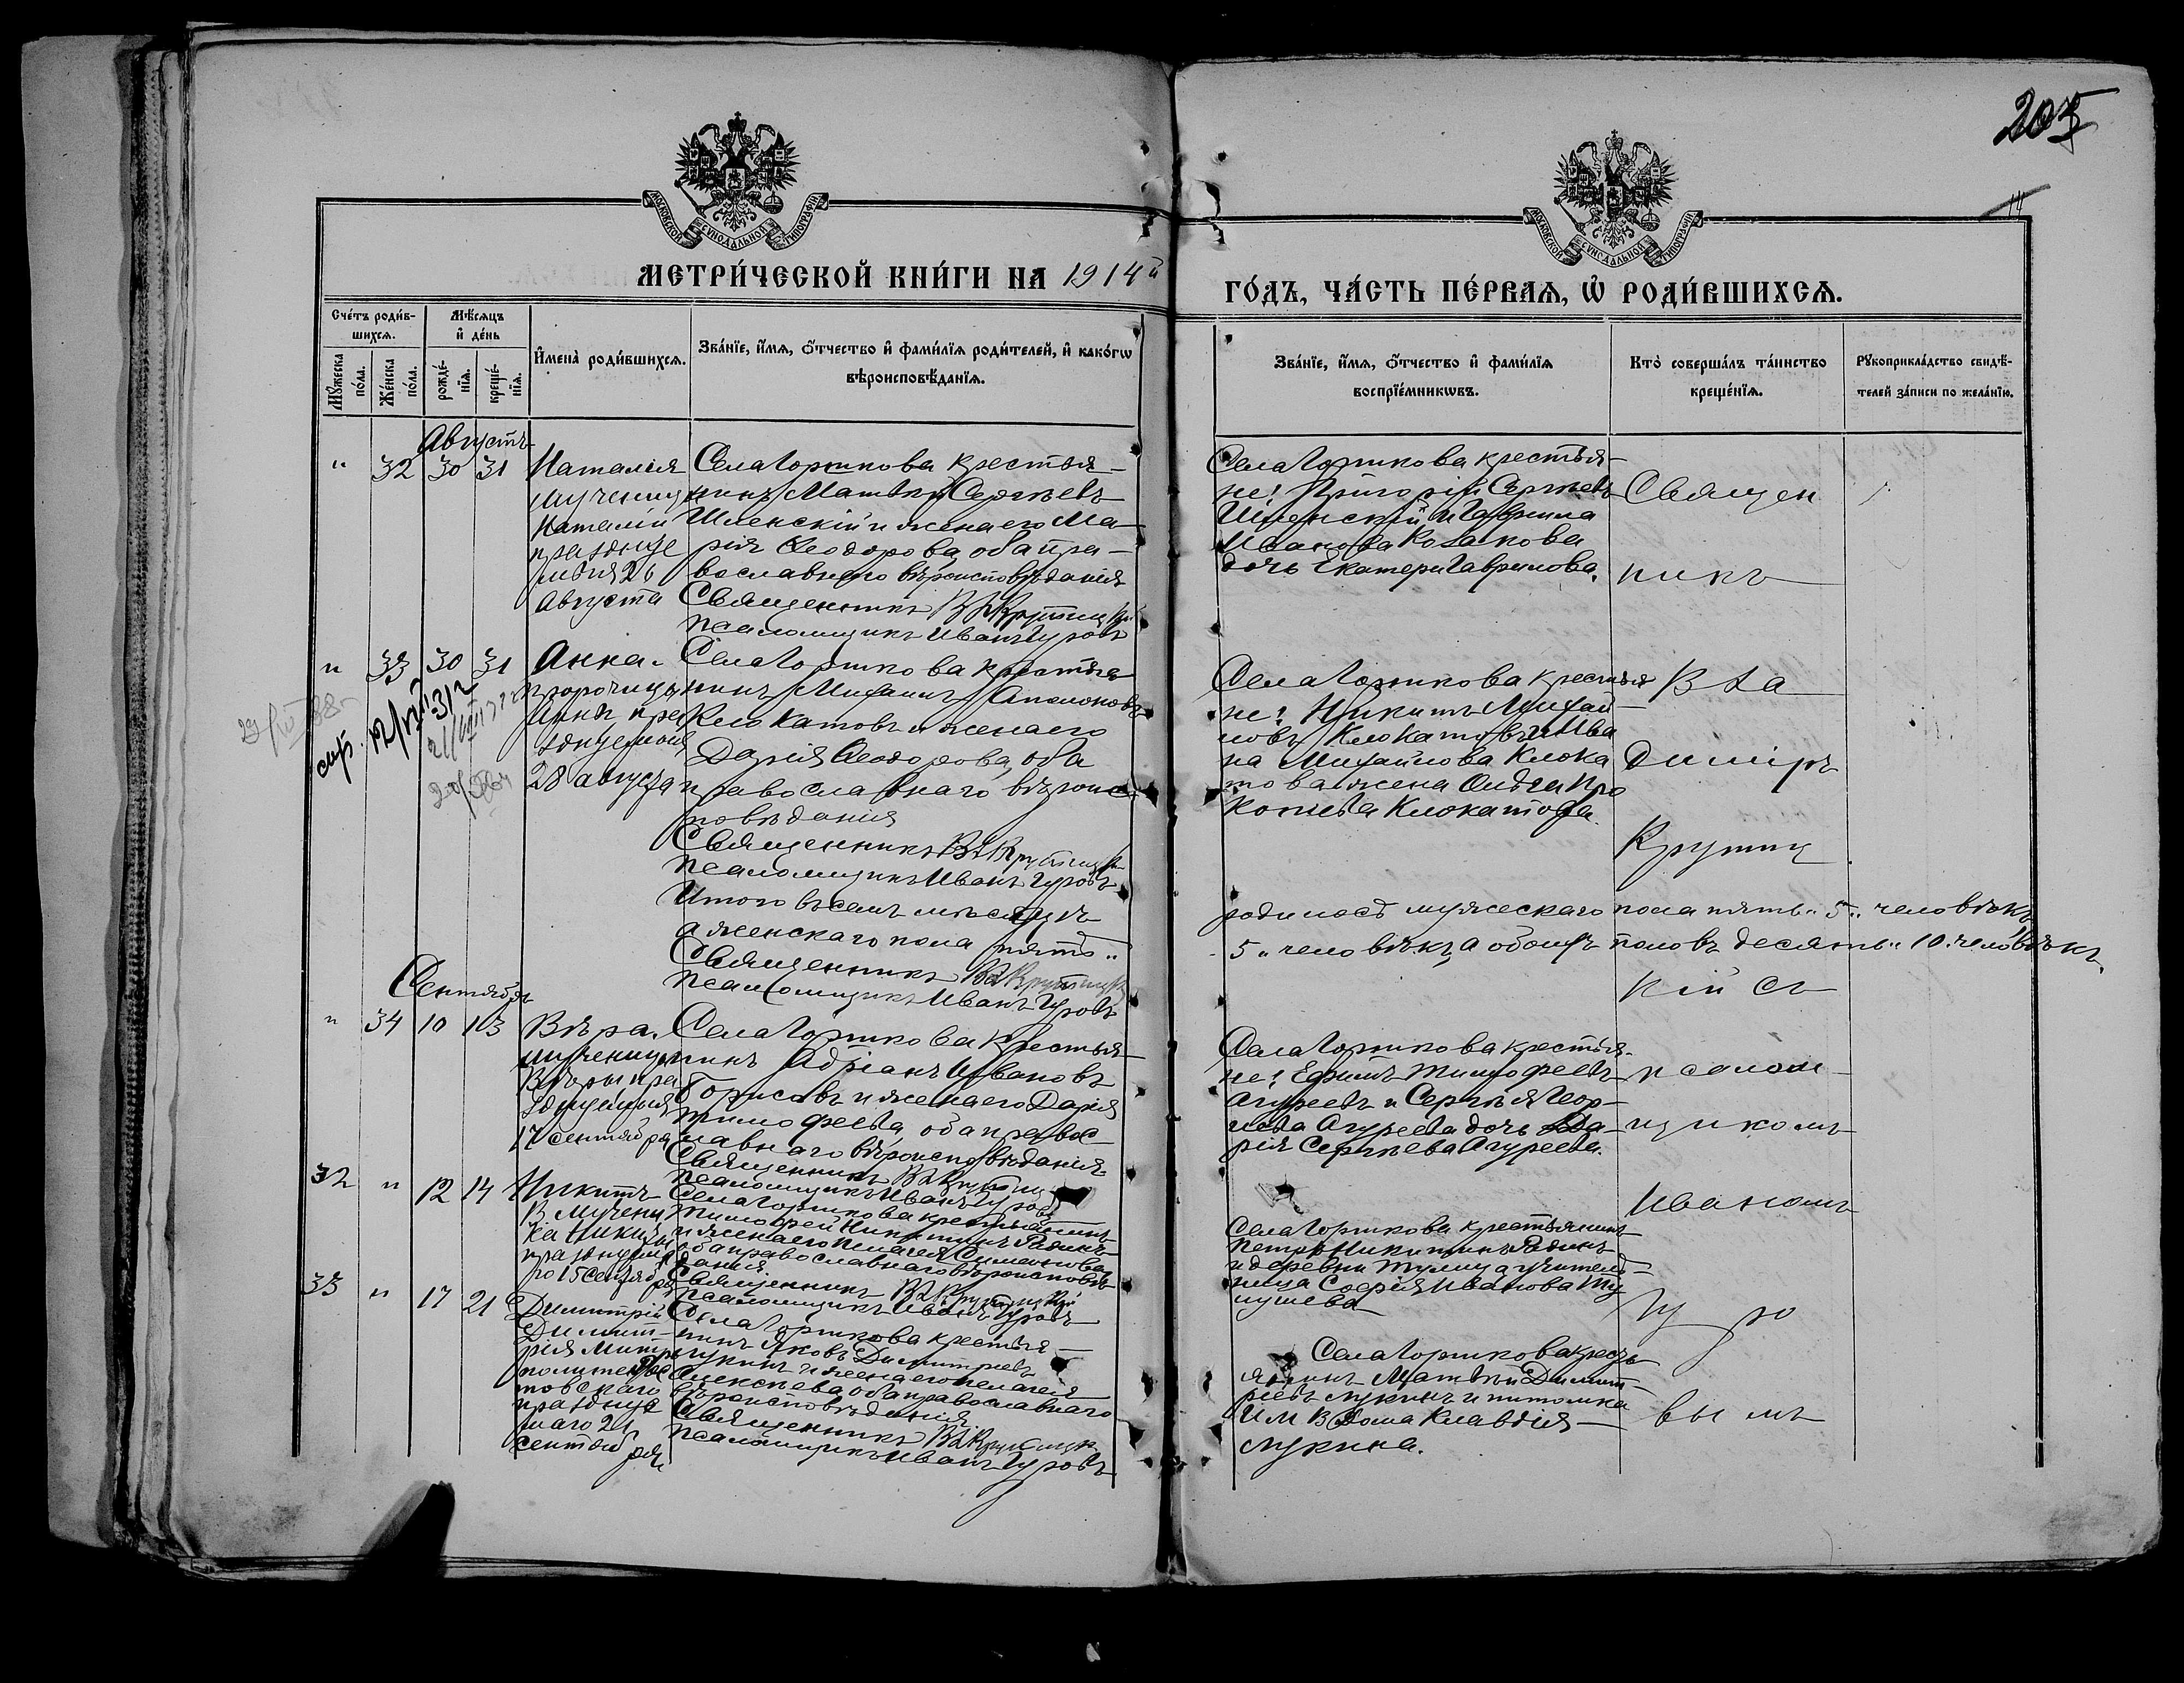 205
14
МОСКОВСКОЙ СѴНОДАЛЬНОЙ ТИПОГРАФІИ
МОСКОВСКОЙ СѴНОДАЛЬНОЙ ТИПОГРАФІИ
МЕТРИ́ЧЕСКОЙ КНИ́ГИ НА 1914й
ГО́ДЪ, ЧА́СТЬ ПЕ́РВАѦ, Ѡ҆ РОДИ́ВШИХСѦ.
Сче́тъ роди́в-
шихсѧ.
Мѣ́сѧцъ
и҆ де́нь
Мꙋ́жеска
по́ла.
Же́нска
по́ла.
рожде́-
нїѧ.
креще́-
нїѧ.
И҆мена̀ роди́вшихсѧ.
Зва́нїе, и҆́мѧ, ѻ҆́тчество и҆ фами́лїѧ роди́телей, и҆ како́гѡ
вѣроисповѣ́данїѧ.
Зва́нїе, и҆́мѧ, ѻ҆́тчество и҆ фами́лїѧ
воспрїе́мникѡвъ.
Кто̀ соверша́лъ та́инство
креще́нїѧ.
Рꙋкоприкла́дство свидѣ́-
телей за́писи по жела́нїю.
Августъ
" 32 30 31
Наталія
мученицы
Наталіи
празднуе
мыя 26
Августа
Села Горшкова крестья-
нинъ Матвѣй Сергѣевъ
Шленскій и жена его Ма-
рія Ѳеодорова, оба пра-
вославнаго вѣроисповѣданія
Священникъ Вл Крутицкій
Псаломщикъ Иванъ Гуровъ
Села Горшкова крестья-
не: Григорій Сергѣевъ
Шленскій и Гаврила
Иванова Козакова
дочь Екатери Гаврилова.
Священ
никъ
" 33 30 31
Анна.
пророчицы
Анны пра
зднуемыя
28 августа
Села Горшкова крестья
нинъ Михаилъ Аполоновъ
Клокатовъ и жена его
Дарія Ѳеодорова, оба
православнаго вѣроис
повѣданія
Священникъ Вл Крутицкій
Псаломщикъ Иванъ Гуровъ
Села Горшкова крестья
не: Никита Михай-
ловъ Клокатовъ и Ива
на Михайлова Клока
това жена Ольга Про
копьева Клокатова.
Вла
диміръ
Крутиц
Итого въ семъ мѣсяцѣ родилось мужескаго пола пять "5" человѣкъ,
а женскаго пола пять "5" человѣкъ, а обоихъ половъ десять "10" человѣкъ.
Священникъ Вл Крутицкій
Псаломщикъ Иванъ Гуровъ
кій съ
Сентябрь
" 34 10 13
Вѣра.
мученицы
Вѣры пра
зднуемыя
17 сентября
Села Горшкова крестья-
нинъ Адріанъ Ивановъ
Борисовъ и жена его Дарія
Тимофеева, оба правос-
лавнаго вѣроисповѣданія
Священникъ Вл Крутиц
Псаломщикъ Иванъ Гуровъ
Села Горшкова крестья-
не: Ефимъ Тимофеевъ
Агуреевъ и Сергѣя Геор-
гіева Агуреева дочь Да-
рія Сергѣева Агуреева.
псалом-
щикомъ
32 " 12 14
Никита
В Мучени
ка Никиты
празднуема
го 15 Сентября
Села Горшкова крестьянинъ
Тимофей Никитинъ Радинъ
и жена его Пелагея Симеонова
оба православнаго вѣроисповѣ-
данія
Священникъ Вл Крутицкій
Псаломщикъ Иванъ Гуровъ
Села Горшкова крестьянинъ
Петръ Никитинъ Радинъ
и деревни учитель-
ница Софія Иванова
Иваномъ
33 " 17 21
Димитрій
Димит-
рія Митро
полита Рос
товскаго
празднуе
маго 21
сентября
Села Горшкова крестья-
нинъ Яковъ Димитріевъ
Лукинъ и жена его Пелагея
Алексѣева, оба православнаго
вѣроисповѣданія.
Священникъ Вл Крутицк
Псаломщикъ Иванъ Гуровъ
Села Горшкова кресть-
янинъ Матвѣй Димит-
ріевъ Лукинъ и питомка
И М В Дома Клавдія
Лукина.
Гуро
вымъ